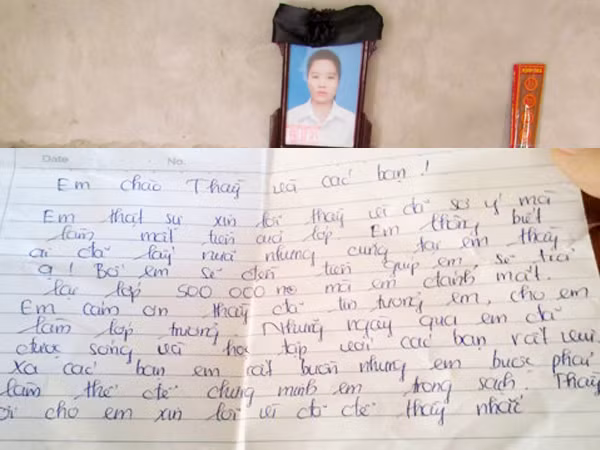 Date No.
Em chào Thầy và các bạn!
Em thật sự xin lỗi thầy vì đã sơ ý mà
làm mất tiền của lớp. Em không biết
ai đã lấy nưa nhưng cung tại em thầy
ạ! Bố em sẽ đến tiền giúp em sẽ trả
lại lớp 500 000 mà em đánh mất.
Em cảm ơn thầy đã tin tưởng em, cho em
làm lớp trưởng. Nhưng ngày qua em đã
được sống và học tập với các bạn rất vui.
Xa các bạn em rất buồn nhưng em buộc phải
làm thế để chứng minh em trong sạch. Thầy
ơi cho em xin lỗi vì đã để thầy nhắc